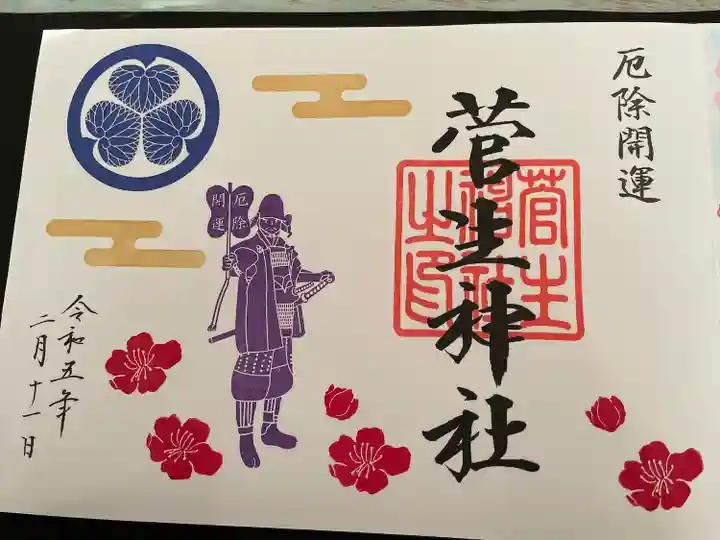 厄除開運
菅生神社
菅生
神社
之印
厄除
開運
令和五年
二月十一日